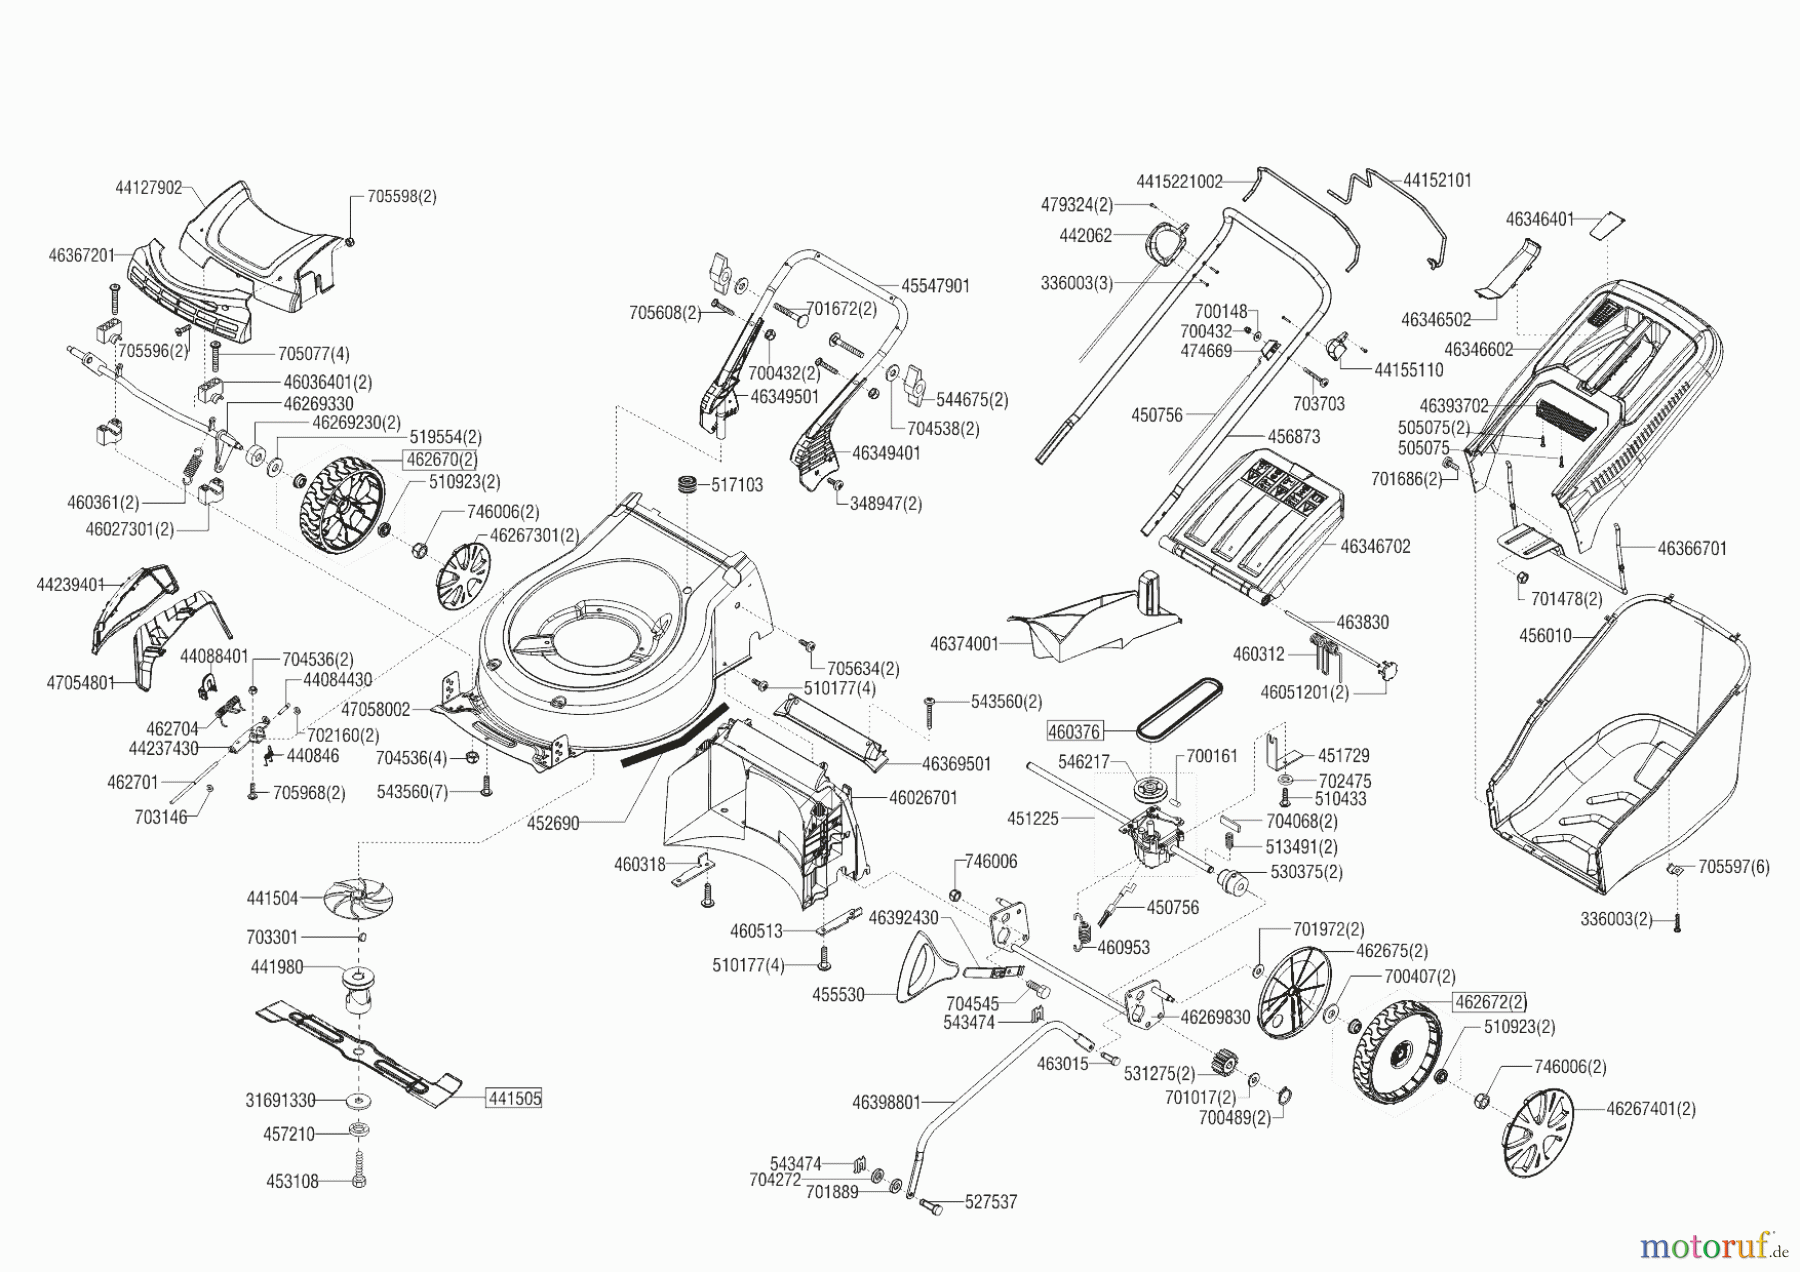 44127902
705598(2)
46367201
705596(2)
705077(4)
46036401(2)
46269330
46269230(2)
519554(2)
462670(2)
510923(2)
460361(2)
46027301(2)
746006(2)
46267301(2)
44239401
44088401
704536(2)
44084430
47054801
462704
44237430
702160(2)
440846
462701
703146
705968(2)
47058002
704536(4)
543560(7)
452690
441504
703301
441980
441505
31691330
457210
453108
705608(2)
701672(2)
45547901
700432(2)
46349501
544675(2)
704538(2)
46349401
517103
348947(2)
705634(2)
510177(4)
543560(2)
46369501
46026701
460318
460513
510177(4)
4415221002
44152101
479324(2)
442062
336003(3)
700148
700432
474669
44155110
703703
450756
456873
46346702
46374001
463830
460312
46051201(2)
460376
546217
700161
451729
702475
510433
451225
704068(2)
513491(2)
530375(2)
746006
450756
460953
46392430
455530
704545
543474
46269830
463015
531275(2)
701017(2)
700489(2)
46398801
543474
704272
701889
527537
701972(2)
462675(2)
700407(2)
462672(2)
510923(2)
746006(2)
46267401(2)
46346401
46346502
46346602
46393702
505075(2)
505075
701686(2)
46366701
701478(2)
456010
705597(6)
336003(2)
motoruf.de